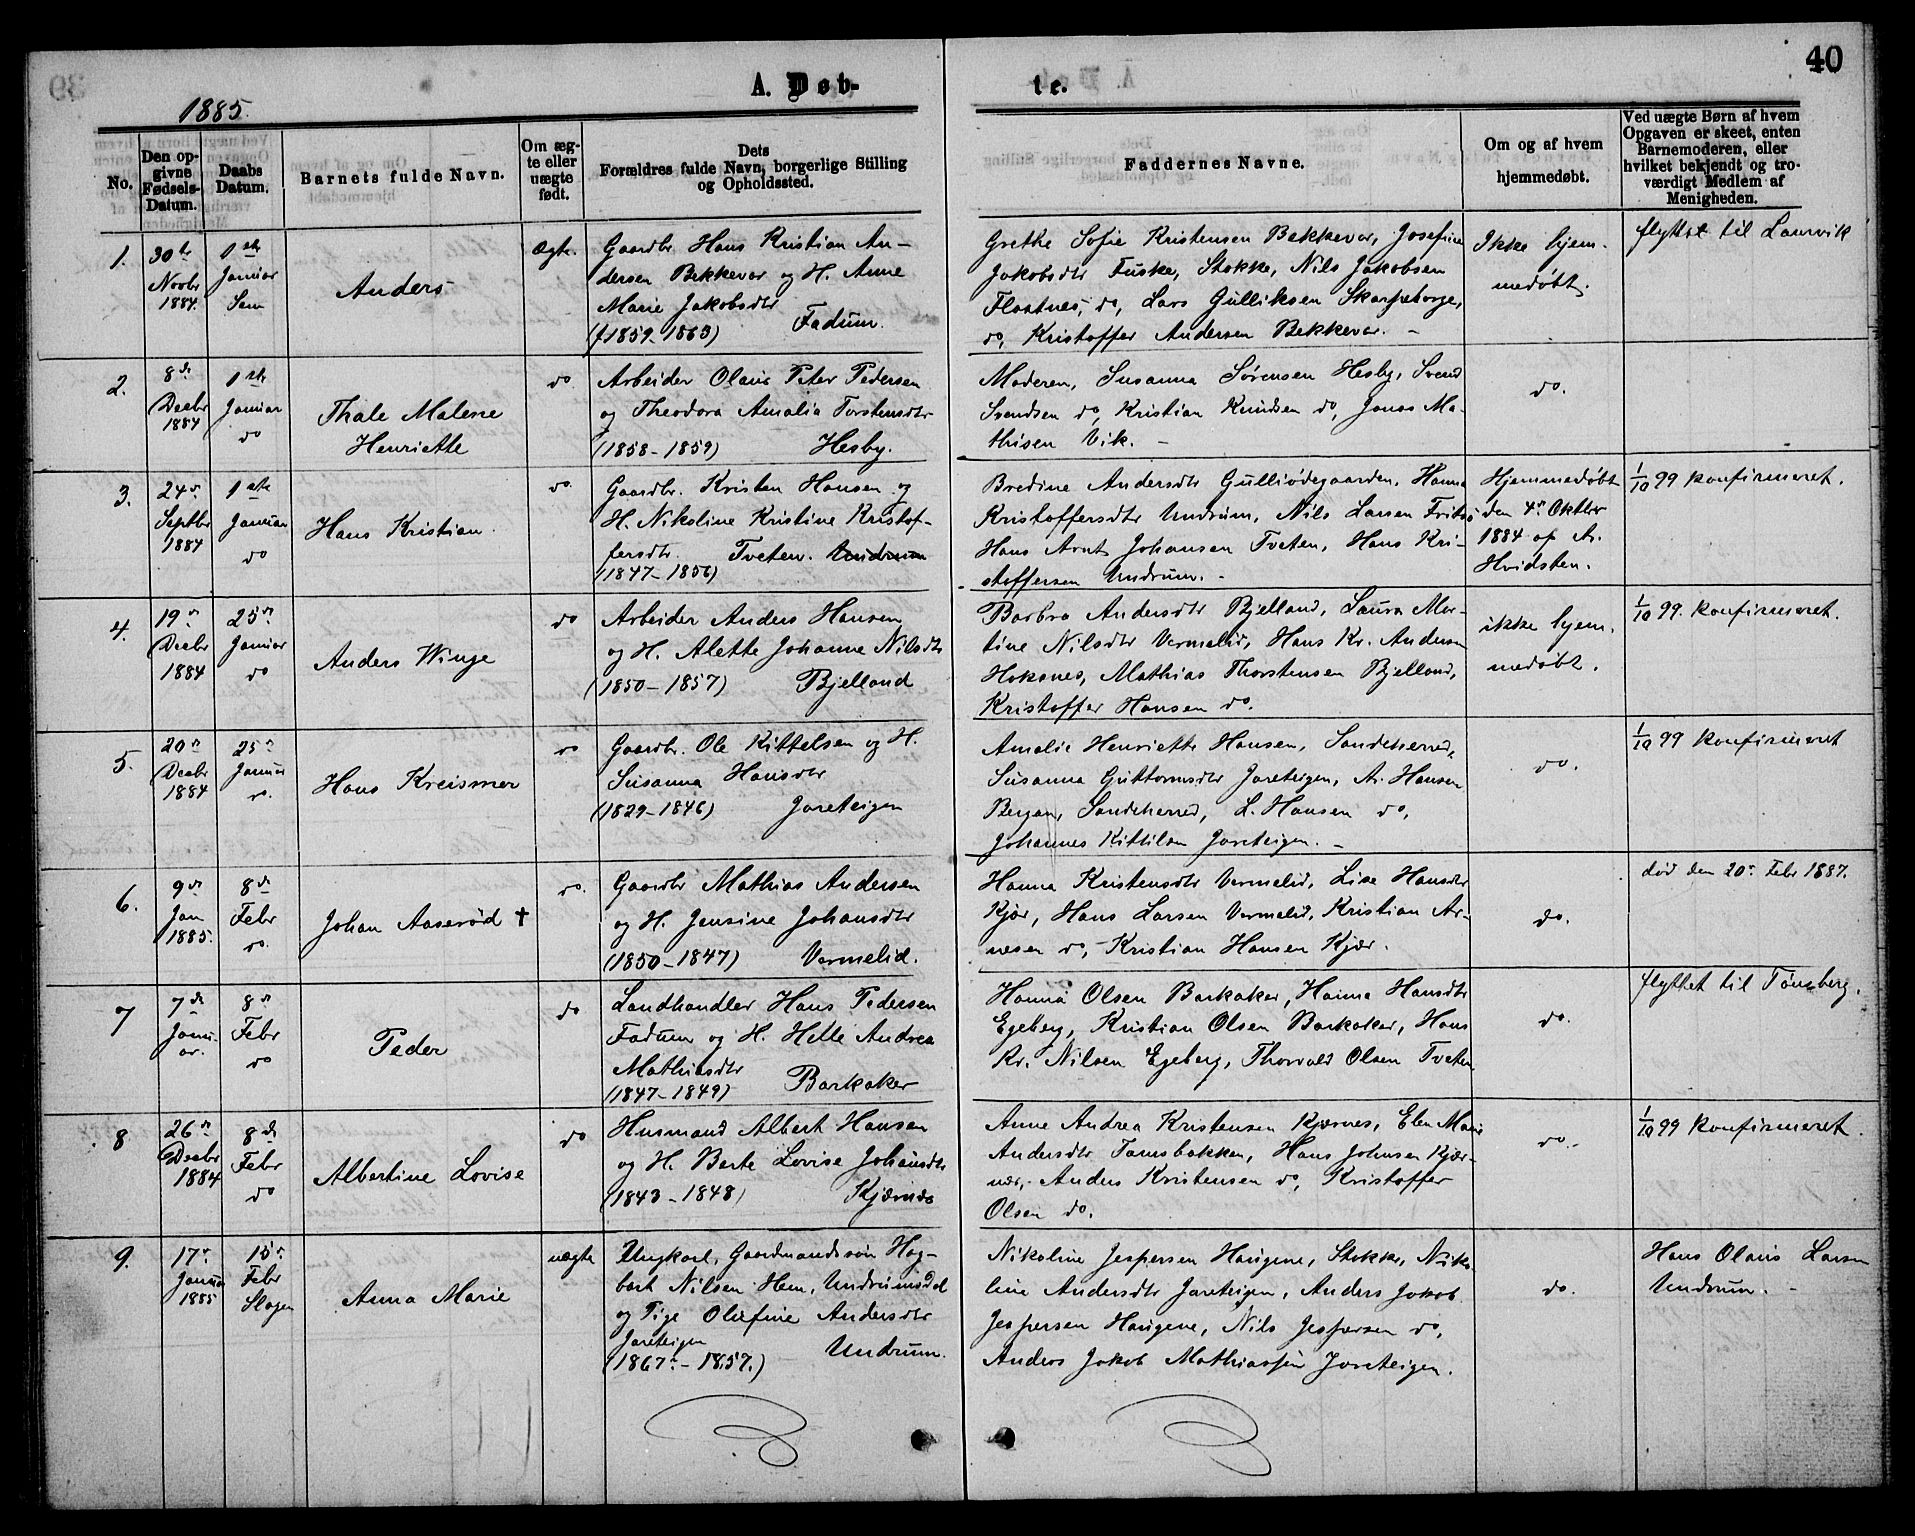 40
A. Døb-
te.
1885.
No.
Den op-
givne
Fødsels-
Datum.
Daabs
Datum.
Barnets fulde Navn.
Om æg-
te eller
uægte
født.
Dets
Forældres fulde Navn, borgerlige Stilling
og Opholdssted.
Faddernes Navne.
Om og af hvem
hjemmedøbt.
Ved uægte Børn af hvem
Opgaven er skeet, enten
Barnemoderen, eller
hvilket bekjendt og tro-
værdigt Medlem af
Menigheden.
1.
30te
Novbr
1884.
1ste
Januar
Sem
Anders
Ægte.
Gaardbr Hans Kristian An-
dersen Bekkevar og H. Anne
Marie Jakobsdtr
(1859-1863) Fadum.
Grethe Sofie Kristensen Bekkevar, Josefine
Jakobsdtr Fuske, Stokke, Nils Jakobsen
Flaatnes, do, Lars Gulliksen Skarpeborge,
do, Kristoffer Andersen Bekkevar. -
Ikke hjem-
medøbt.
flyttet til Laurvik
2.
8de
Decbr
1884
1ste
Januar
do
Thale Malene
Henriette
do.
Arbeider Olaus Peter Pedersen
og Theodora Amalia Torstensdtr
(1858-1859) Hesby.
Moderen, Susanna Sørensen Hesby, Svend
Svendsen do, Kristian Knudsen do, Jonas Ma-
thisen Vik. -
do.
3.
24de
Septbr
1884
1ste
Januar
do
Hans Kristian.
do.
Gaardbr. Kristen Hansen og
H. Nikoline Kristine Kristof-
fersdtr. Tveten. Undrum
(1847-1856)
Bredine Andersdtr Gulliødegaarden, Hanna
Kristoffersdtr Undrum, Nils Larsen Fritsø
Hans Arnt Johansen Tveten, Hans Kri-
stoffersen Undrum. -
Hjemmedøbt
den 4de Oktbr
1884 af A.
Hvidsten.
1/10 99 konfirmeret.
4.
19de
Decbr
1884
25de
Januar
do
Anders Winge
do
Arbeider Anders Hansen
og H. Alette Johanne Nilsdtr
(1850-1857) Bjelland
Barbra Andersdtr Bjelland, Laura Mar-
tine Nilsdtr Vermelid, Hans Kr. Andersen
Hoksnes, Mathias Thorstensen Bjelland,
Kristoffer Hansen do.
ikke hjem.
medøbt.
1/10 99. konfirmeret.
5.
20de
Decbr
1884
25de
Januar
do.
Hans Kreismer
do
Gaardbr. Ole Kittelsen og H.
Susanna Hansdtr
(1829-1846) Jareteigen
Amalie Henriette Hansen, Sandeherred,
Susanna Guttormsdtr Jareteigen, A. Hansen
Bergan, Sandeherred, L. Hansen do,
Johannes Kittilsen Jareteigen. -
do.
1/10 99 konfirmeret
6.
9de
Jan
1885.
8de
Febr
do.
Johan Aaserød †
do.
Gaardbr Mathias Andersen
og H. Jensine Johansdtr
(1850-1847) Vermelid.
Hanna Kristensdtr Vermelid, Lise Hansdtr
Kjær, Hans Larsen Vermelid, Kristian Ar-
nesen do, Kristian Hansen Kjær.
do.
død den 20de Febr 1887.
7
7de
Janu-
ar.
8de
Febr
do
Peder
do
Landhandler Hans Pedersen
Fadum og H. Helle Andrea
Mathiasdtr
(1847-1849) Barkaker
Hanna Olsen Barkaker, Hanna Hansdtr
Egeberg, Kristian Olsen Barkaker, Hans
Kr. Nilsen Egeberg, Thorvald Olsen Tveten
do.
flyttet til Tønsberg.
8
26de
Decbr
1884
8de
Febr
do
Albertine Lovise
do
Husmand Albert Hansen
og H. Berte Lovise Johansdtr
(1843-1848) Kjærnes
Anne Andrea Kristensen Kjærnes, Elen Marie
Andersdtr Tamsbakken, Hans Johnsen Kjær-
nes, Anders Kristensen do, Kristoffer
Olsen do.
do.
1/10 99 konfirmeret.
9.
17de
Januar
1885
15de
Febr
Slagen
Anna Marie
uægte
Ungkarl, Gaardmandssøn Hag-
bart Nilsen Hem, Undrumsdal
og Pige Olufine Andersdtr
Jareteigen
(1867-1857.) Undrum.
Nikoline Jespersen Haugene, Stokke, Niko-
line Andersdtr Jareteigen, Anders Jakob
Jespersen Haugene, Nils Jespersen do,
Anders Jakob Mathiassen Jareteigen.
do.
Hans Olaus Larsen
Undrum. -